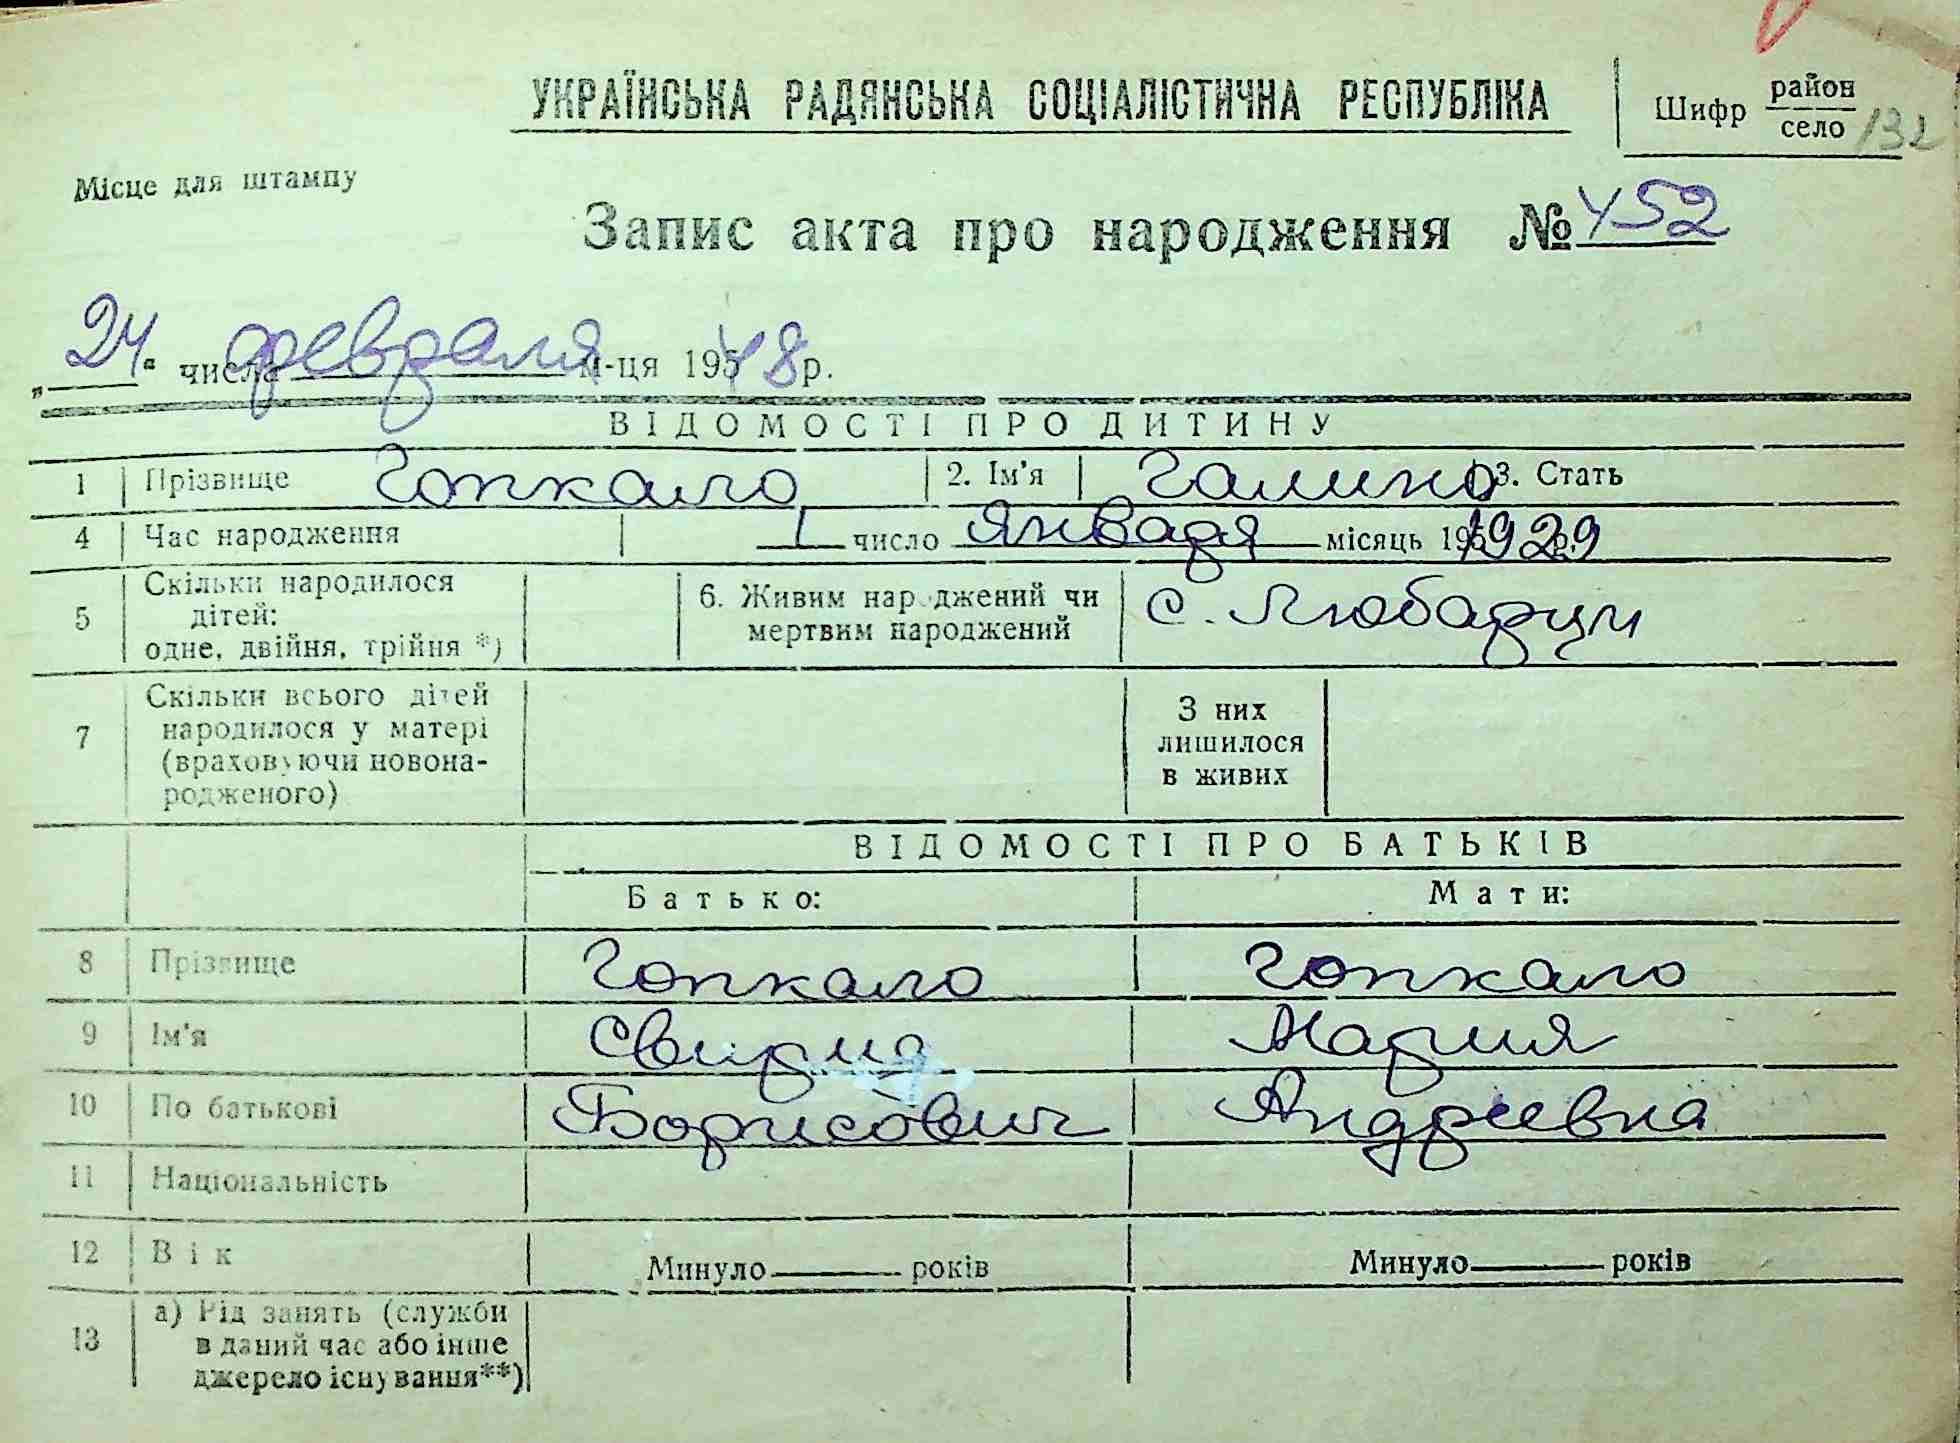 УКРАЇНСЬКА РАДЯНСЬКА СОЦІАЛІСТИЧНА РЕСПУБЛІКА
Шифр район
село 132
Місце для штампу
Запис акта про народження № 452
„24“ числа февраля м-ця 195 48 р.
ВІДОМОСТІ ПРО ДИТИНУ
1 Прізвище Гопкало 2. Ім'я Галина 3. Стать
4 Час народження 1 число Января місяць 195 1929 р.
5 Скільки народилося дітей: одне, двійня, трійня *) 6. Живим народжений чи мертвим народжений с. Любарци
7 Скільки всього дітей народилося у матері (враховуючи новонародженого) З них лишилося в живих
ВІДОМОСТІ ПРО БАТЬКІВ
Батько: Мати:
8 Прізвище Гопкало Гопкало
9 Ім'я Свирид Мария
10 По батькові Борисович Андреевна
11 Національність
12 Вік Минуло років Минуло років
13 а) Рід занять (служби в даний час або інше джерело існування**)